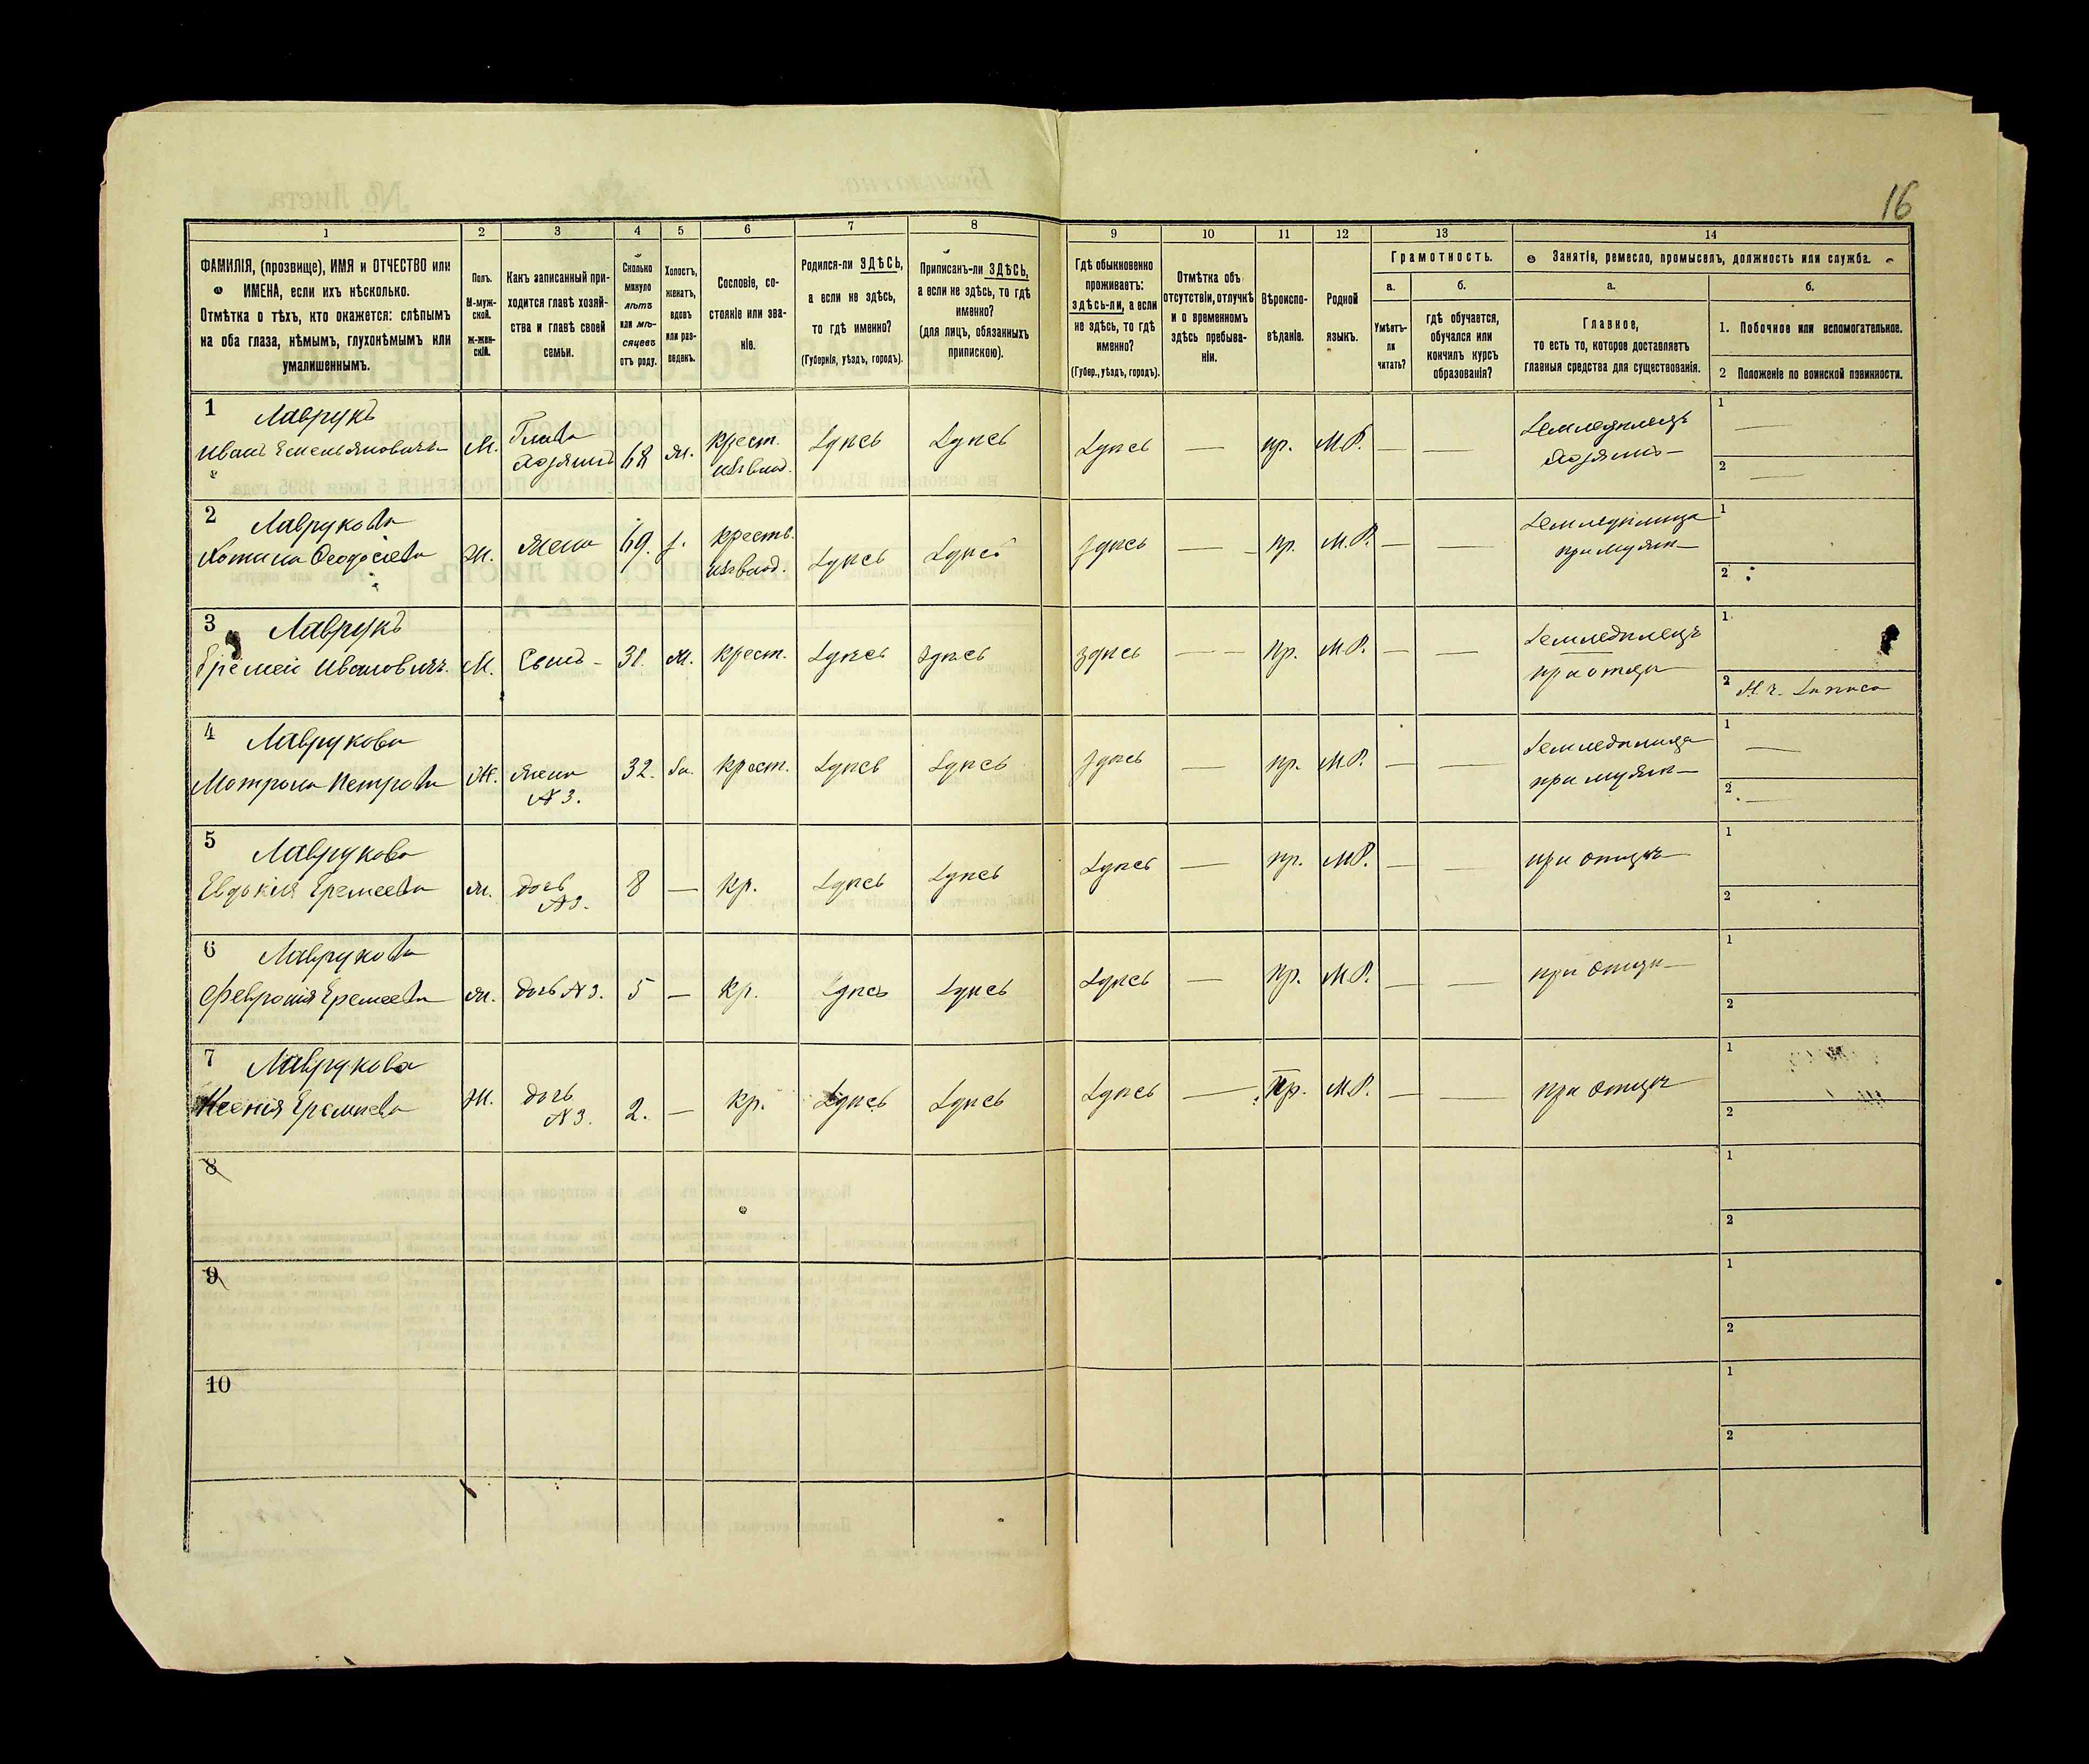 16
1 2 3 4 5 6 7 8 9 10 11 12 13 14
ФАМИЛІЯ, (прозвище), ИМЯ и ОТЧЕСТВО или
ИМЕНА, если ихъ нѣсколько.
Отмѣтка о тѣхъ, кто окажется: слѣпымъ
на оба глаза, нѣмымъ, глухонѣмымъ или
умалишеннымъ.
Полъ.
М-муж-
ской.
Ж-жен-
скій.
Какъ записанный при-
ходится главѣ хозяй-
ства и главѣ своей
семьи.
Сколько
минуло
лѣтъ
или мѣ-
сяцевъ
отъ роду.
Холостъ,
женатъ,
вдовъ
или раз-
веденъ.
Сословіе, со-
стояніе или зва-
ніе.
Родился-ли ЗДѢСЬ,
а если не здѣсь,
то гдѣ именно?
(Губернія, уѣздъ, городъ).
Приписанъ-ли ЗДѢСЬ,
а если не здѣсь, то гдѣ
именно?
(для лицъ, обязанныхъ
припискою).
Гдѣ обыкновенно
проживаетъ:
здѣсь-ли, а если
не здѣсь, то гдѣ
именно?
(Губер., уѣздъ, городъ).
Отмѣтка объ
отсутствіи, отлучкѣ
и о временномъ
здѣсь пребыва-
ніи.
Вѣроиспо-
вѣданіе.
Родной
языкъ.
Грамотность.
а.
Умѣетъ-
ли
читать?
б.
гдѣ обучается,
обучался или
кончилъ курсъ
образованія?
Занятіе, ремесло, промыселъ, должность или служба.
а.
Главное,
то есть то, которое доставляетъ
главныя средства для существованія.
б.
1. Побочное или вспомогательное.
2 Положеніе по воинской повинности.
1 Лаврукъ
Иванъ Емельяновичъ М. Глава хозяинъ 68 ж. крест. Здѣсь Здѣсь Здѣсь — пр. М.Р. — — Земледѣлецъ хозяинъ— 1 — 2 —
2 Лаврукова
Ѳеодосіева Ж. Жена 69. з. крестьян. Здѣсь Здѣсь здѣсь — пр. М.Р. — — Земледѣлица при мужѣ— 1 2
3 Лаврукъ
Еремей Ивановичъ. М. Сынъ - 31. ж. крест. Здѣсь Здѣсь здѣсь — пр. М.Р. — — Земледѣлецъ при отцѣ 1 2
4 Лаврукова
Матрона Петрова Ж. Жена N 3. 32. за. крест. Здѣсь Здѣсь здѣсь — пр. М.Р. — — Земледѣлица при мужѣ— 1 — 2 —
5 Лаврукова
Евдокія Еремеева ж. дочь N3. 8 — кр. Здѣсь Здѣсь Здѣсь — пр. М.Р. — — при отцѣ 1 2
6 Лаврукова
Февронія Еремеева ж. дочь N 3. 5 — кр. Здѣсь Здѣсь Здѣсь — пр. М.Р. — — при отцѣ— 1 2
7 Лаврукова
Ксенія Еремѣева Ж. дочь N 3. 2. — кр. Здѣсь Здѣсь Здѣсь — Пр. М.Р. — — при отцѣ 1 2
8 1 2
9 1 2
10 1 2